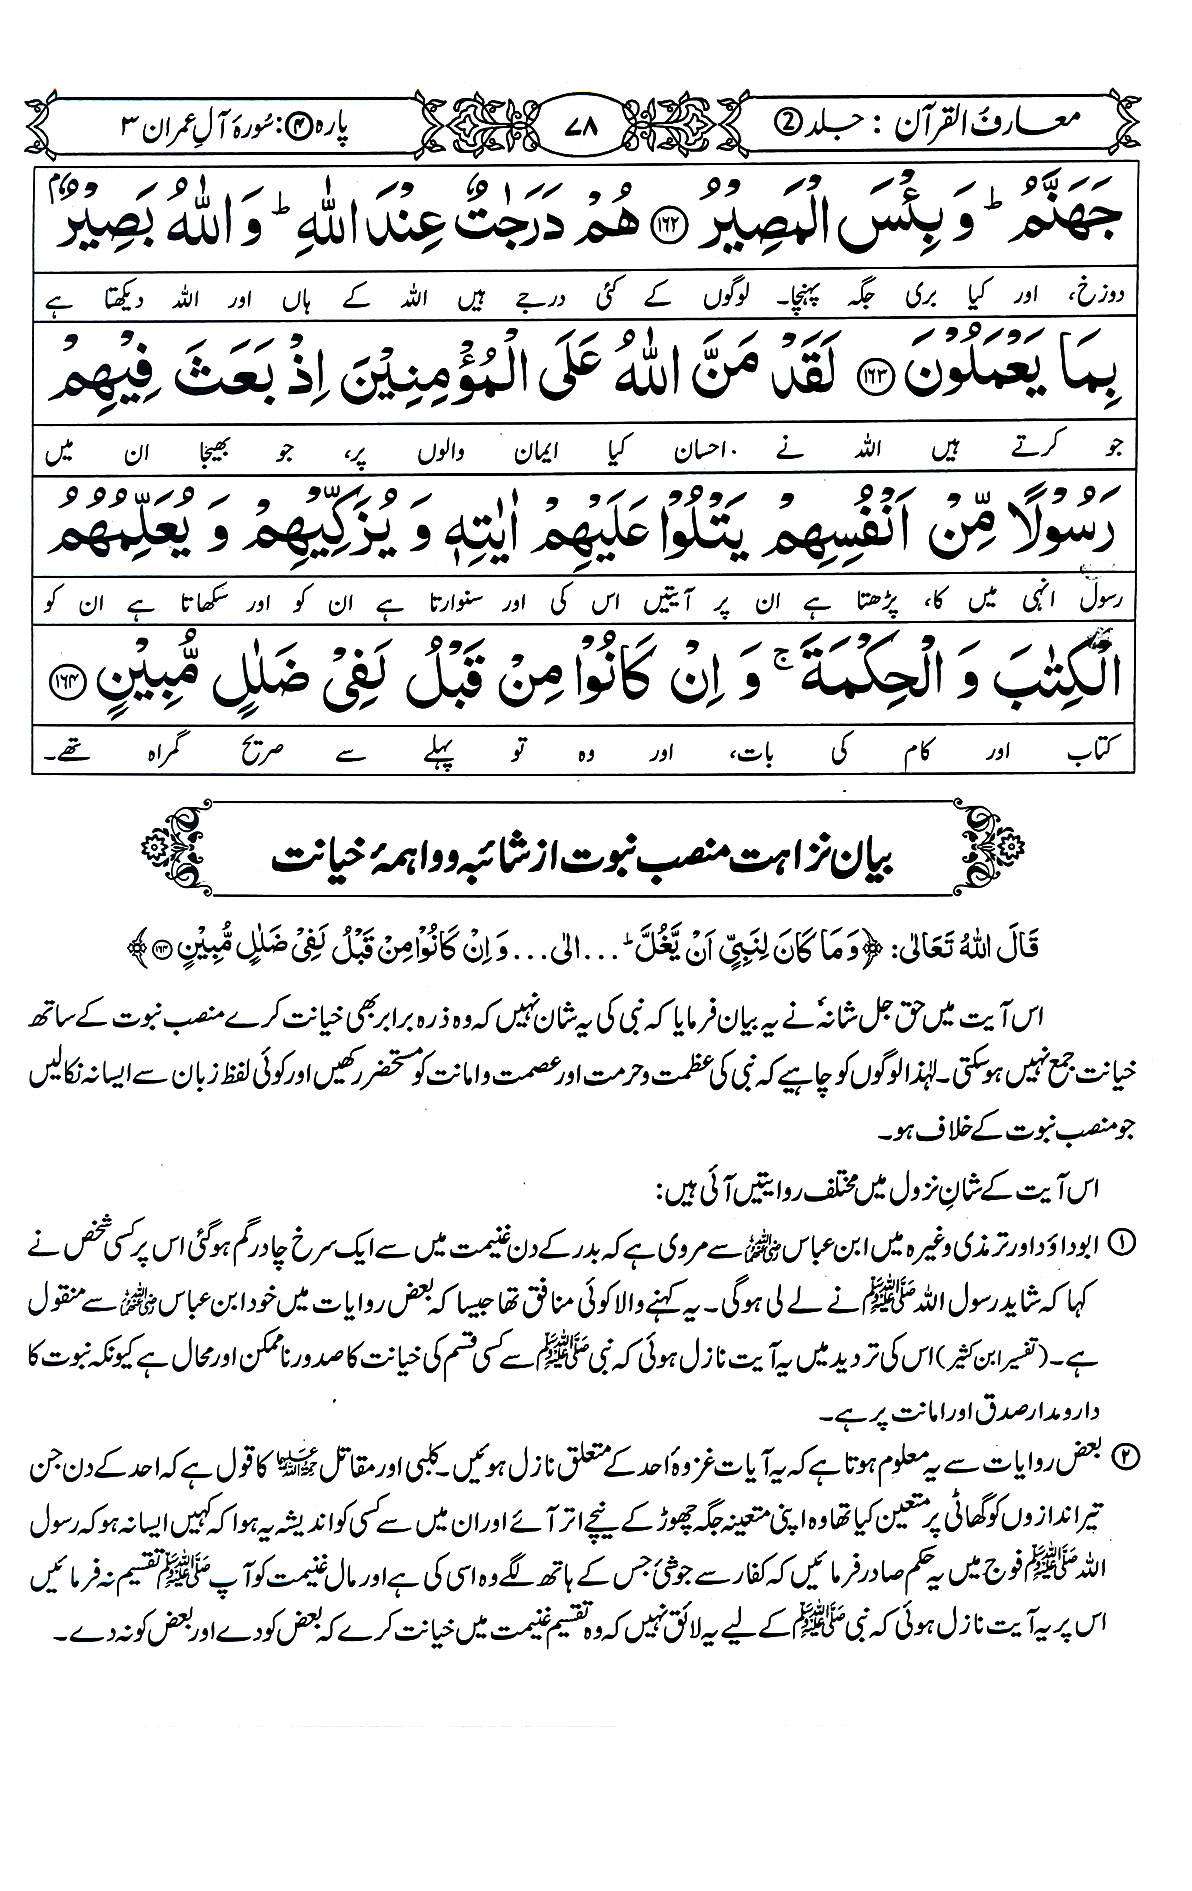 معارف القرآن : جلد ②
۷۸
پارہ ④ : سُورہ آلِ عمران ۳
جَهَنَّمُ ؕ وَ بِئْسَ الْمَصِيْرُ ۝۱۶۲ هُمْ دَرَجٰتٌ عِنْدَ اللّٰهِ ؕ وَ اللّٰهُ بَصِيْرٌۢ
دوزخ، اور کیا بری جگہ پہنچا۔ لوگوں کے کئی درجے ہیں اللہ کے ہاں اور اللہ دیکھتا ہے
بِمَا يَعْمَلُوْنَ ۝۱۶۳ لَقَدْ مَنَّ اللّٰهُ عَلَى الْمُؤْمِنِيْنَ اِذْ بَعَثَ فِيْهِمْ
جو کرتے ہیں اللہ نے احسان کیا ایمان والوں پر، جو بھیجا ان میں
رَسُوْلًا مِّنْ اَنْفُسِهِمْ يَتْلُوْا عَلَيْهِمْ اٰيٰتِهٖ وَ يُزَكِّيْهِمْ وَ يُعَلِّمُهُمُ
رسول انہی میں کا، پڑھتا ہے ان پر آیتیں اس کی اور سنوارتا ہے ان کو اور سکھاتا ہے ان کو
الْكِتٰبَ وَ الْحِكْمَةَ ۚ وَ اِنْ كَانُوْا مِنْ قَبْلُ لَفِيْ ضَلٰلٍ مُّبِيْنٍ ۝۱۶۴
کتاب اور کام کی بات، اور وہ تو پہلے سے صریح گمراہ تھے۔
بیان نزاہت منصب نبوت از شائبہ و واہمۂ خیانت
قَالَ اللهُ تَعَالٰى: ﴿وَمَا كَانَ لِنَبِيٍّ اَنْ يَّغُلَّ ؕ ... الٰى ... وَاِنْ كَانُوْا مِنْ قَبْلُ لَفِيْ ضَلٰلٍ مُّبِيْنٍ ۝۱۶۴﴾
اس آیت میں حق جل شانہٗ نے یہ بیان فرمایا کہ نبی کی یہ شان نہیں کہ وہ ذرہ برابر بھی خیانت کرے منصب نبوت کے ساتھ
خیانت جمع نہیں ہوسکتی۔ لہٰذا لوگوں کو چاہیے کہ نبی کی عظمت و حرمت اور عصمت و امانت کو مستحضر رکھیں اور کوئی لفظ زبان سے ایسا نہ نکالیں
جو منصب نبوت کے خلاف ہو۔
اس آیت کے شانِ نزول میں مختلف روایتیں آئی ہیں:
① ابوداؤد اور ترمذی وغیرہ میں ابن عباس رضی اللہ عنہما سے مروی ہے کہ بدر کے دن غنیمت میں سے ایک سرخ چادر گم ہوگئی اس پر کسی شخص نے
کہا کہ شاید رسول اللہ ﷺ نے لے لی ہوگی۔ یہ کہنے والا کوئی منافق تھا جیسا کہ بعض روایات میں خود ابن عباس رضی اللہ عنہما سے منقول
ہے۔ (تفسیر ابن کثیر) اس کی تردید میں یہ آیت نازل ہوئی کہ نبی ﷺ سے کسی قسم کی خیانت کا صدور ناممکن اور محال ہے کیونکہ نبوت کا
دارومدار صدق اور امانت پر ہے۔
② بعض روایات سے یہ معلوم ہوتا ہے کہ یہ آیات غزوہ احد کے متعلق نازل ہوئیں۔ کلبی اور مقاتل کا قول ہے کہ احد کے دن جن
تیراندازوں کو گھاٹی پر متعین کیا تھا وہ اپنی متعینہ جگہ چھوڑ کے نیچے اتر آئے اور ان میں سے کسی کو اندیشہ یہ ہوا کہ کہیں ایسا نہ ہو کہ رسول
اللہ ﷺ فوج میں یہ حکم صادر فرمائیں کہ کفار سے جو شئ جس کے ہاتھ لگے وہ اسی کی ہے اور مال غنیمت کو آپ ﷺ تقسیم نہ فرمائیں
اس پر یہ آیت نازل ہوئی کہ نبی ﷺ کے لیے یہ لائق نہیں کہ وہ تقسیم غنیمت میں خیانت کرے کہ بعض کو دے اور بعض کو نہ دے۔